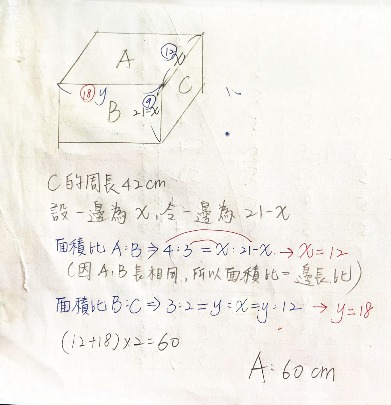 A
⑫ x
C
⑱ y
B
⑨
21-x
C的周長42cm
設一邊為x,令一邊為21-x
面積比A:B⇒4:3=x:21-x→x=12
(因A,B長相同,所以面積比=邊長比)
面積比B:C⇒3:2=y:x=y:12→y=18
(12+18)×2=60
A:60cm